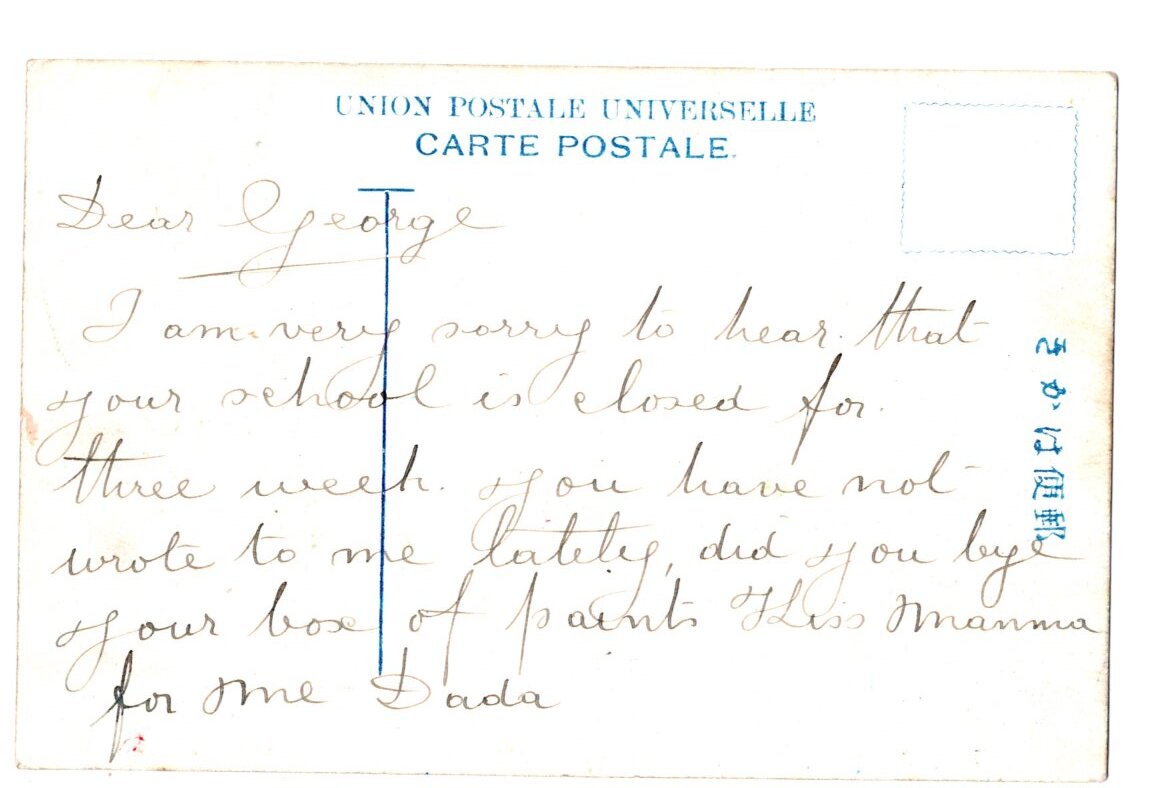 UNION POSTALE UNIVERSELLE
CARTE POSTALE.
Dear George
I am very sorry to hear that
your school is closed for
three week. you have not
wrote to me lately, did you bye
your box of paints Kiss Mamma
for me Dada
郵便はかき